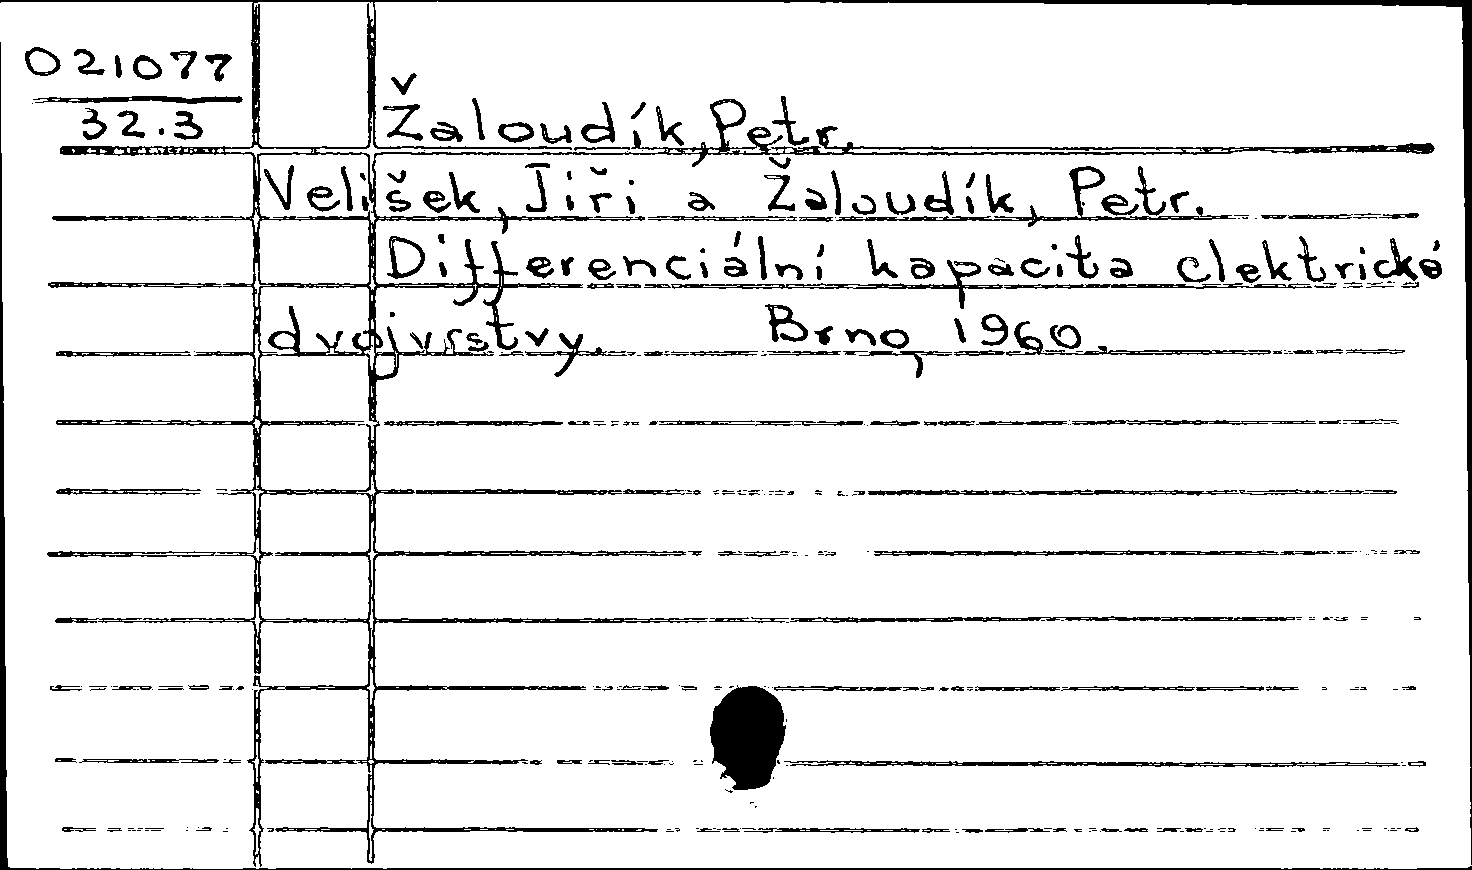 021077
32.3
Žaloudík, Petr.
Velišek, Jiří a Žaloudík, Petr.
Differenciální kapacita elektrické
dvojvrstvy. Brno, 1960.